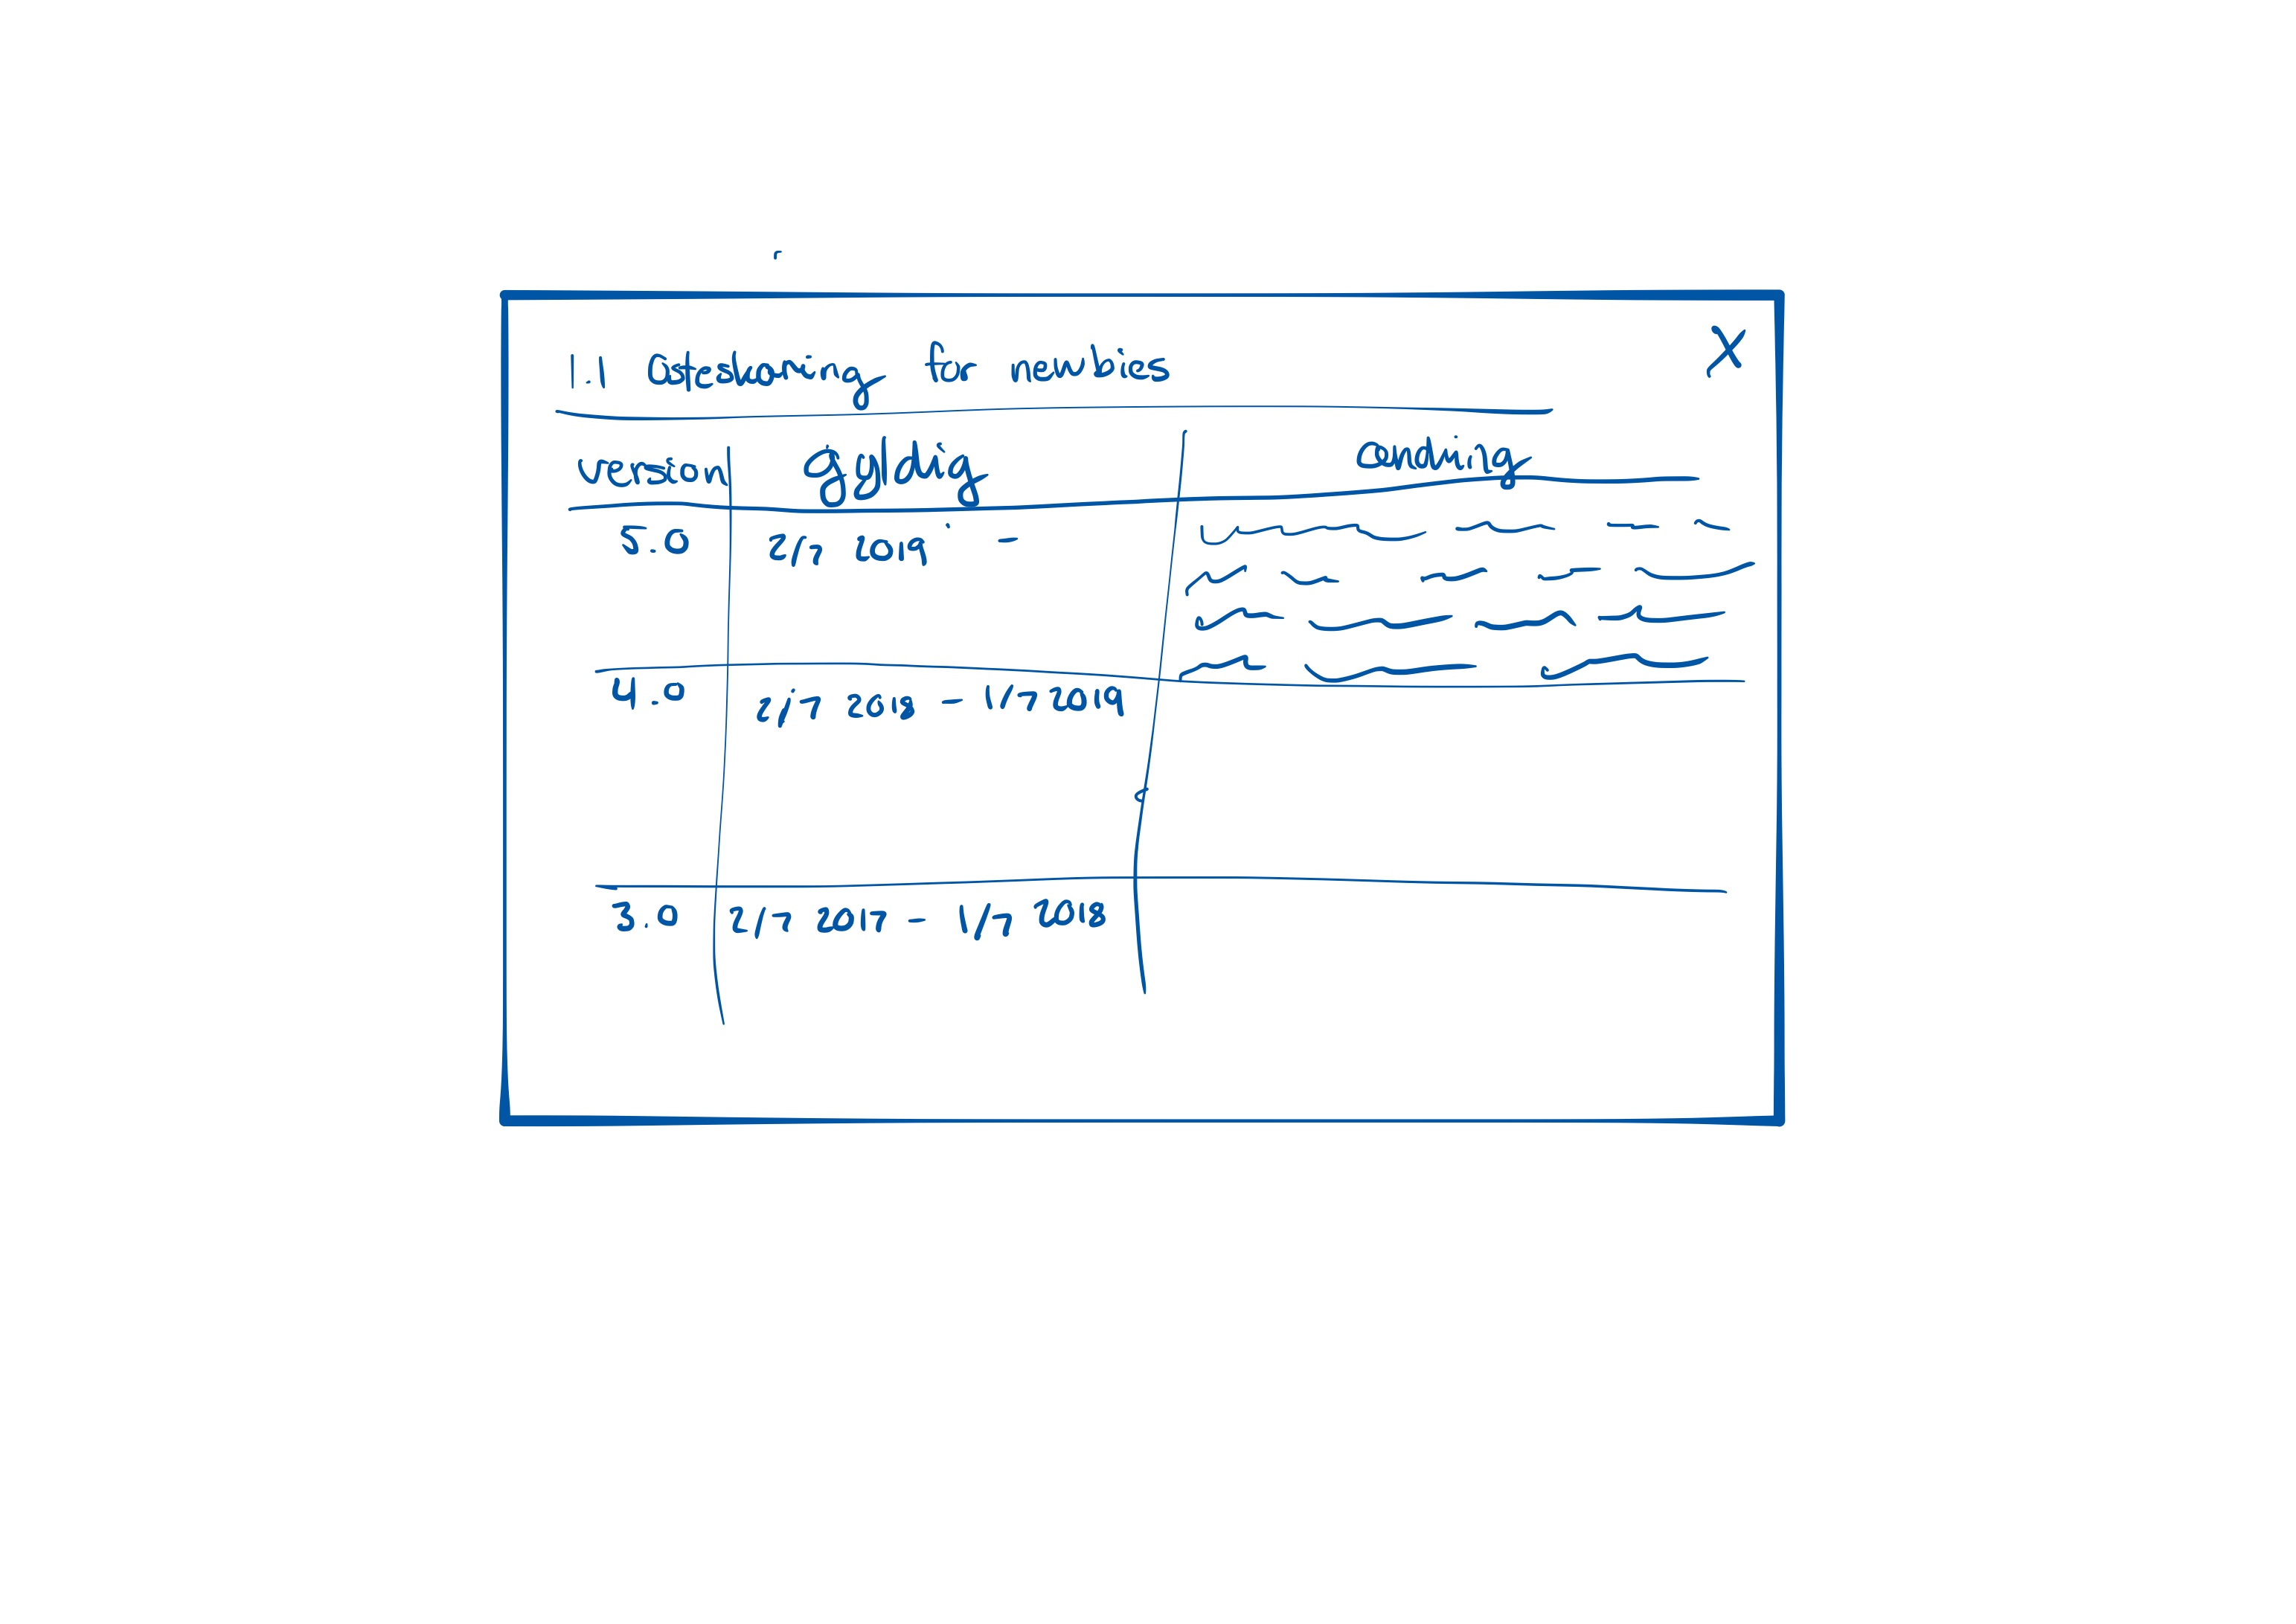 1.1 Osteskæring for newbies X
Version gyldig ændring
5.0 2/7 2019 -
4.0 2/7 2018 - 1/7 2019
3.0 2/7 2017 - 1/7 2018